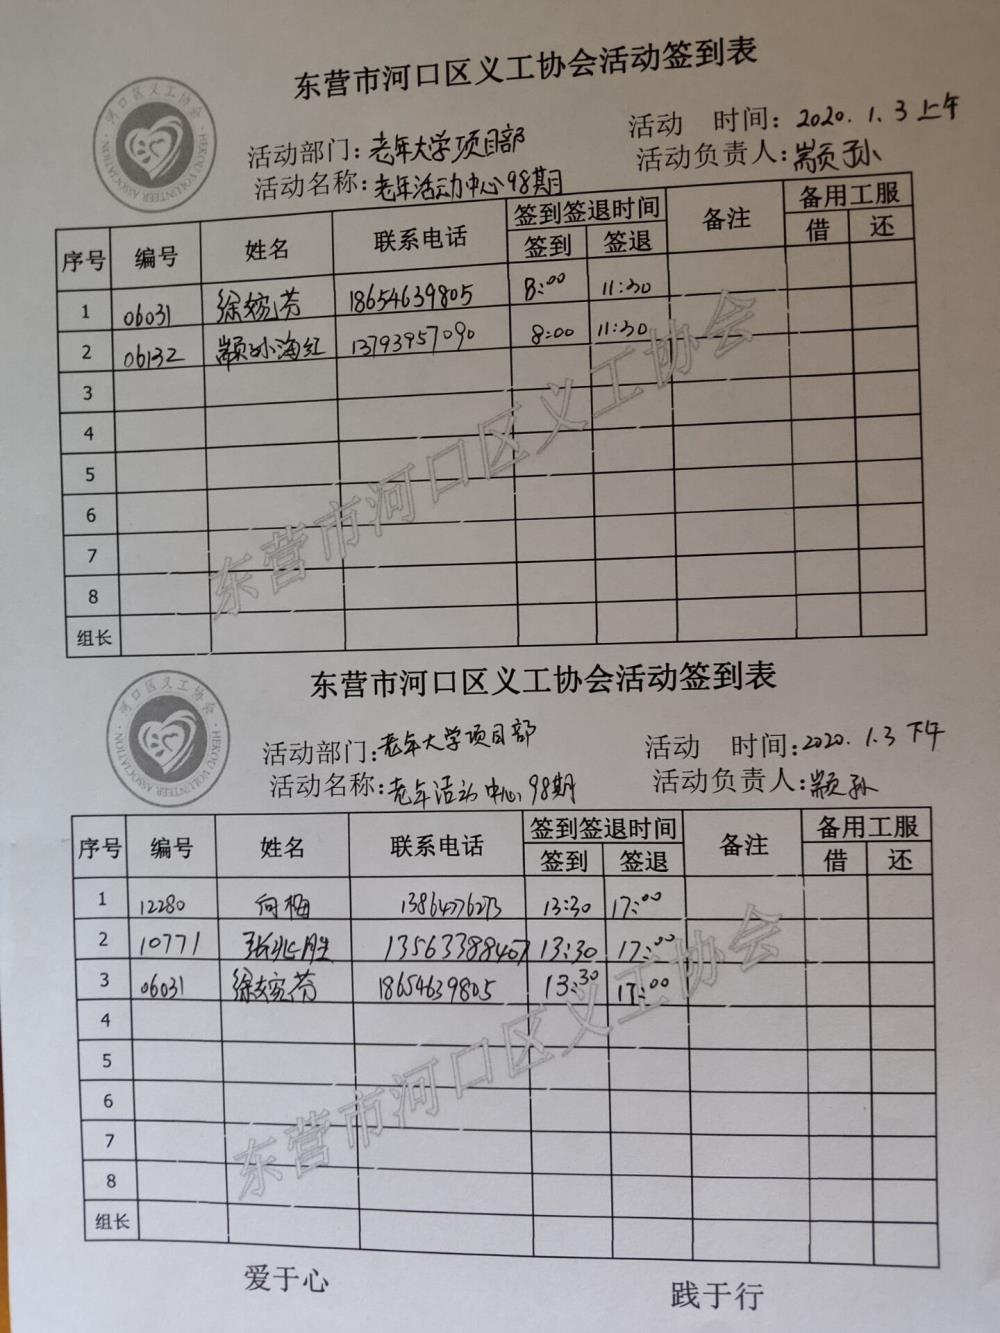 东营市河口区义工协会活动签到表
河口区义工协会
HEKOU VOLUNTEER ASSOCIATION
活动部门：老年大学项目部
活动 时间：2020.1.3上午
活动名称：老年活动中心98期
活动负责人：颛孙
序号 编号 姓名 联系电话 签到签退时间 备注 备用工服
签到 签退 借 还
1 06031 徐婉芳 18654639805 8:00 11:30
2 06132 颛孙海红 13793957090 8:00 11:30
3
4
5
6
7
8
组长
东营市河口区义工协会
东营市河口区义工协会活动签到表
河口区义工协会
HEKOU VOLUNTEER ASSOCIATION
活动部门：老年大学项目部
活动 时间：2020.1.3下午
活动名称：老年活动中心98期
活动负责人：颛孙
序号 编号 姓名 联系电话 签到签退时间 备注 备用工服
签到 签退 借 还
1 12280 向梅 13864776273 13:30 17:00
2 10771 张兆胜 13563388407 13:30 17:00
3 06031 徐婉芳 18654639805 13:30 17:00
4
5
6
7
8
组长
东营市河口区义工协会
爱于心 践于行